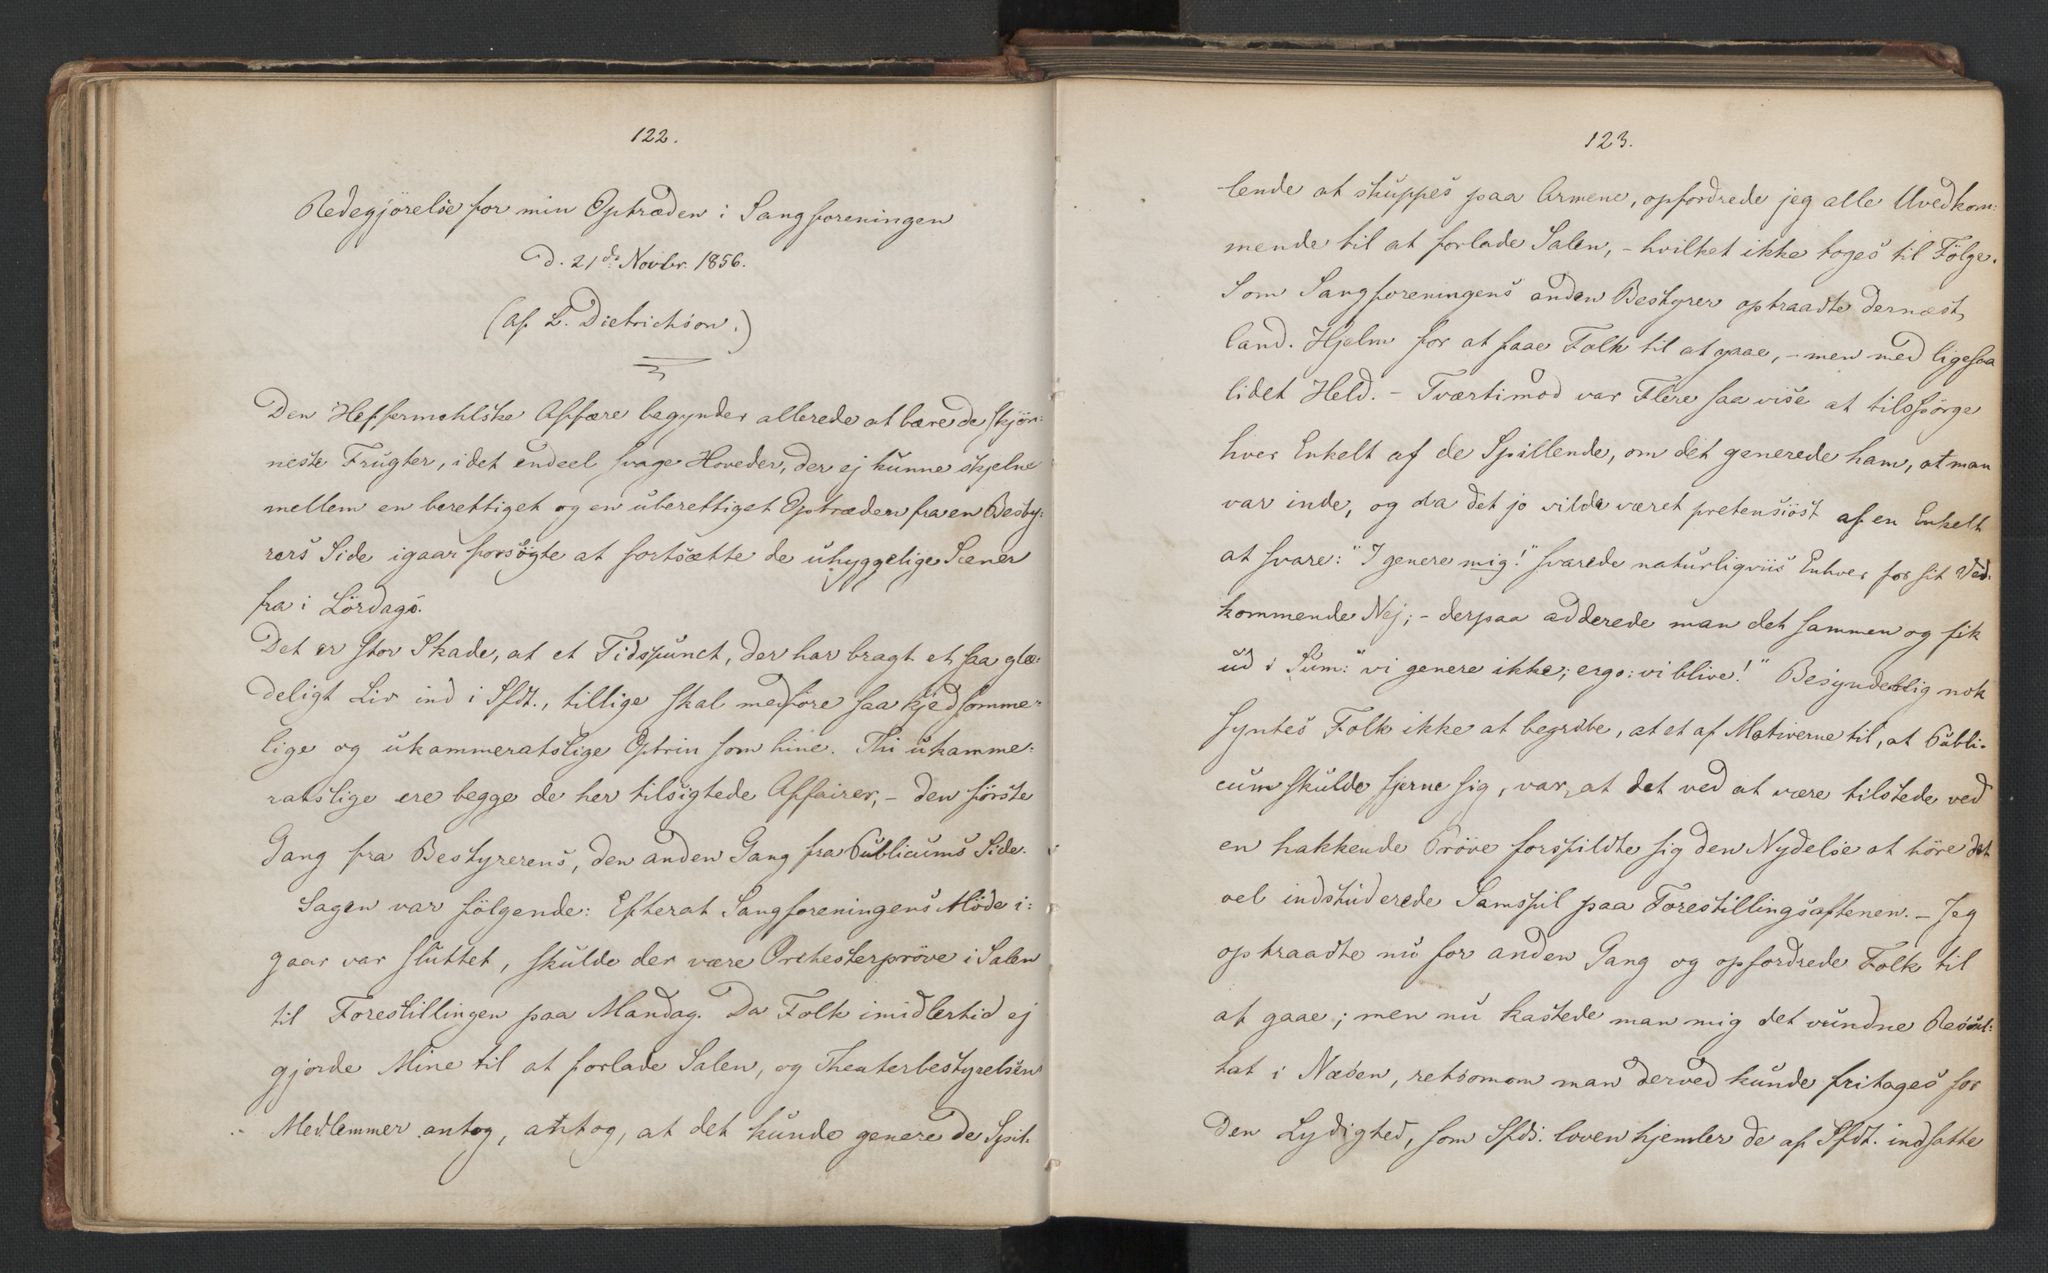 122.
Redegjörelse for min Optræden i Sangforeningen
D. 21de Novbr. 1856.
(af L. Dietrichson.)
Den Heffermehlske Affære begynder allerede at bære de skjön-
neste Frugter, idet endeel svage Hoveder, der ej kunne skjelne
mellem en berettiget og en uberettiget Optræden fra en Besty-
rers Side igaar forsögte at fortsætte de uhyggelige Scener
fra i Lördags.
Det er stor Skade, at et Tidspunct, der har bragt et saa glæ-
deligt Liv ind i Sfdt., tillige skal medføre saa kjedsomme-
lige og ukammeratslige Optrin som hine. Thi ukamme-
ratslige ere begge de her tilsigtede Affairer, – den förste
Gang fra Bestyrerens, den anden Gang fra Publicums Side.
Sagen var fölgende: Efterat Sangforeningens Möde i-
gaar var sluttet, skulde der være Orchesterpröve i Salen
til Forestillingen paa Mandag. Da Folk imidlertid ej
gjorde Mine til at forlade Salen, og Theaterbestyrelsens
Medlemmer antog, antog, at det kunde genere de Spil-
123.
lende at skuppes paa Armene, opfordrede jeg alle Uvedkom-
mende til at forlade Salen, – hvilket ikke toges til Fölge.
Som Sangforeningens anden Bestyrer optraadte dernæst
Cand. Hjelm for at faae Folk til at gaae, – men med ligesaa
lidet Held. – Tværtimod var Flere saa vise at tilspörge
hver Enkelt af de Spillende, om det generede ham, at man
var inde, og da det jo vilde været pretensiöst af en Enkelt
at svare: "I genere mig!" svarede naturligviis Enhver for sit Ved-
kommende Nej; – derpaa adderede man det sammen og fik
ud i Sum: "vi genere ikke; ergo: vi blive!" Besynderlig nok
syntes Folk ikke at begribe, at et af Motiverne til, at Publi-
cum skulde fjerne sig, var, at det ved at være tilstede ved
en hakkende Pröve forspildte sig den Nydelse at höre det
vel indstuderede Samspil paa Forestillingsaftenen. – Jeg
optraadte nu for anden Gang og opfordrede Folk til
at gaae; men nu kastede man mig det vundne Resul-
tat i Næsen, retsomom man derved kunde fritages for
den Lydighed, som Sfds. loven hjemler de af Sfdt. indsatte